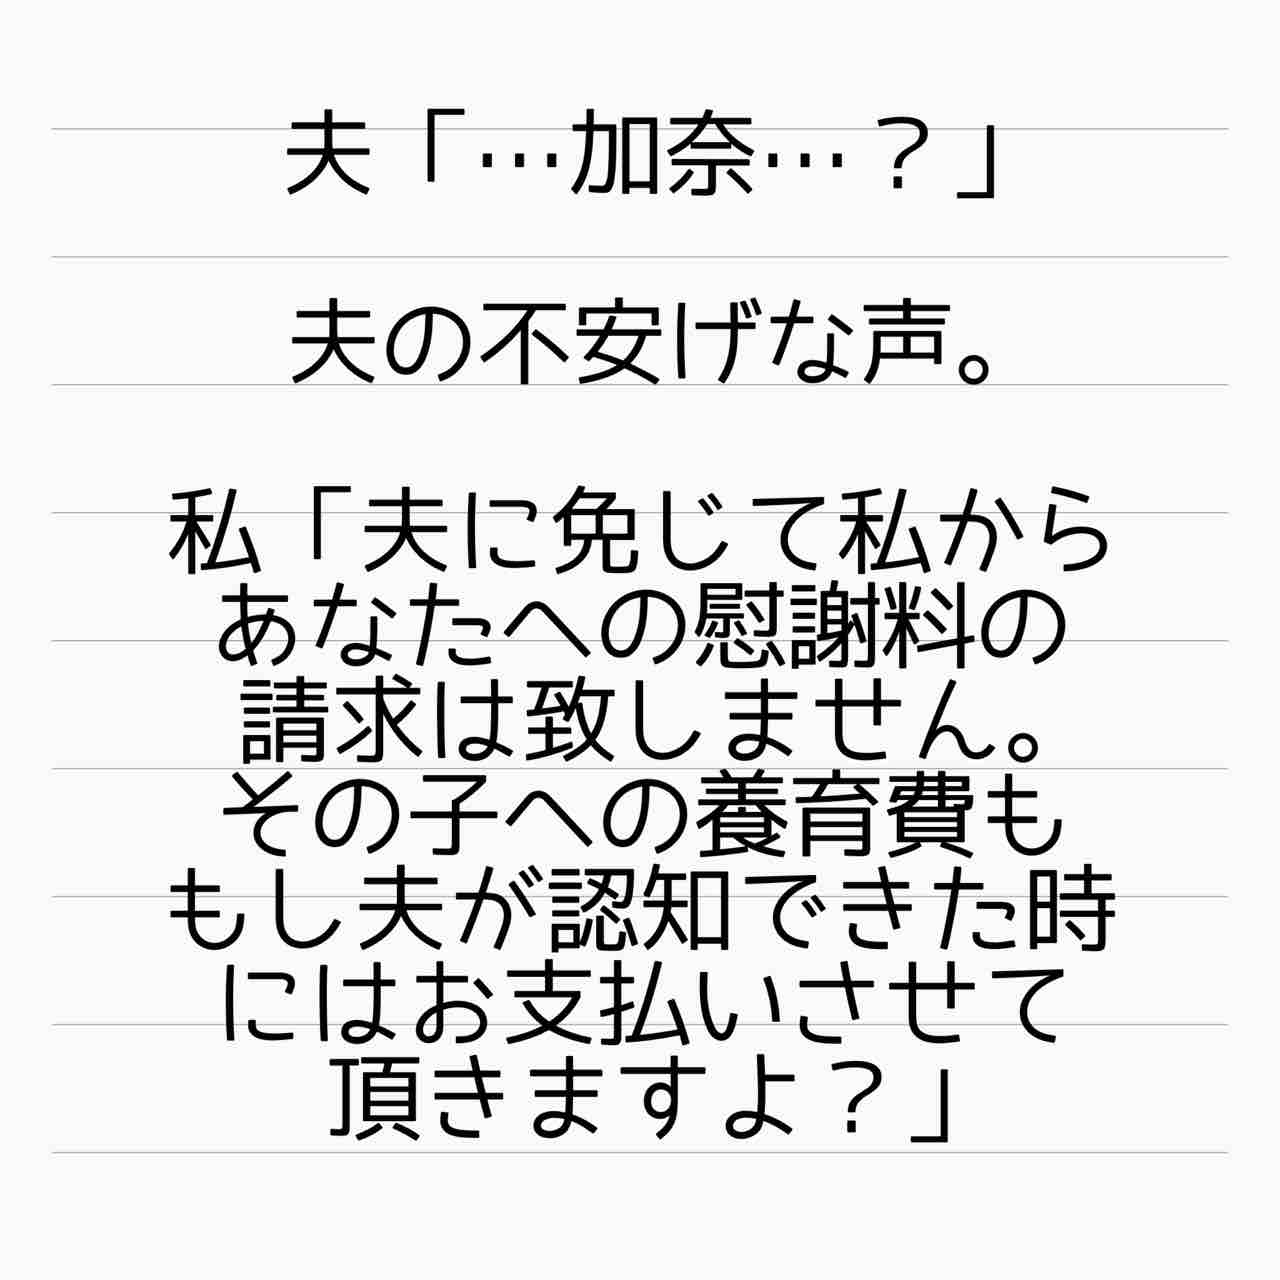 夫「…加奈…？」
夫の不安げな声。
私「夫に免じて私から
あなたへの慰謝料の
請求は致しません。
その子への養育費も
もし夫が認知できた時
にはお支払いさせて
頂きますよ？」